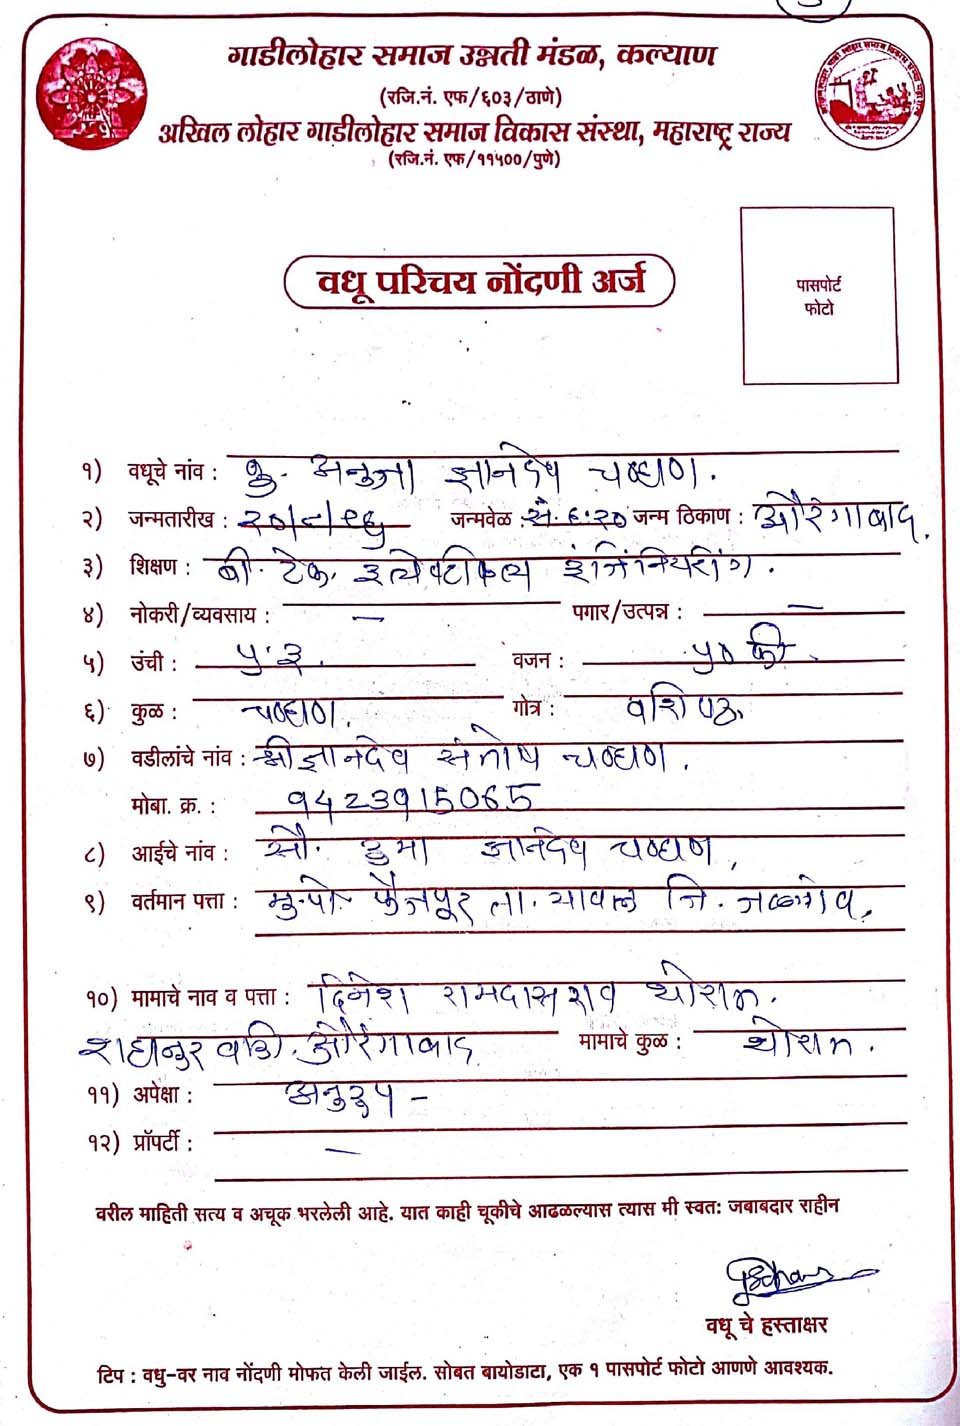 गाडीलोहार समाज उन्नती मंडळ, कल्याण
(रजि.नं. एफ/६०३/ठाणे)
अखिल लोहार गाडीलोहार समाज विकास संस्था, महाराष्ट्र राज्य
(रजि.नं. एफ/११५००/पुणे)
पासपोर्ट
फोटो
वधू परिचय नोंदणी अर्ज
१) वधूचे नांव : कु. अनुजा ज्ञानदेव चव्हाण.
२) जन्मतारीख : २०/८/९६ जन्मवेळ सं. ६.२० जन्म ठिकाण : औरंगाबाद.
३) शिक्षण : बी. टेक. इलेक्ट्रीकल इंजिनियरींग.
४) नोकरी/व्यवसाय : — पगार/उत्पन्न : —
५) उंची : ५.३. वजन : ५० की.
६) कुळ : चव्हाण. गोत्र : वशिष्ठ
७) वडीलांचे नांव : श्री ज्ञानदेव संतोष चव्हाण.
मोबा. क्र. : 9423915065
८) आईचे नांव : सौ. ज्ञानदेव चव्हाण,
९) वर्तमान पत्ता : मु.पो. फैजपूर ता. यावल जि. जळगांव,
१०) मामाचे नाव व पत्ता : दिनेश रामदासराव थोरात.
शहानुरवाडी. औरंगाबाद मामाचे कुळ : थोरात.
११) अपेक्षा : अनुरुप -
१२) प्रॉपर्टी : —
वरील माहिती सत्य व अचूक भरलेली आहे. यात काही चूकीचे आढळल्यास त्यास मी स्वतः जबाबदार राहीन
वधू चे हस्ताक्षर
टिप : वधु-वर नाव नोंदणी मोफत केली जाईल. सोबत बायोडाटा, एक १ पासपोर्ट फोटो आणणे आवश्यक.